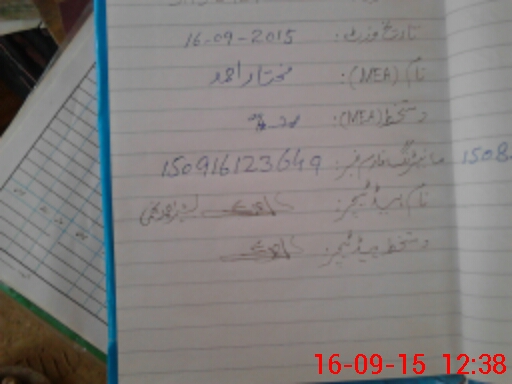 تاریخ وزٹ: 16-09-2015
نام (MEA): مختار احمد
دستخط (MEA):
مانیٹرنگ فارم نمبر: 150916123649
1508
نام ہیڈ ٹیچر:
دستخط ہیڈ ٹیچر:
16-09-15 12:38